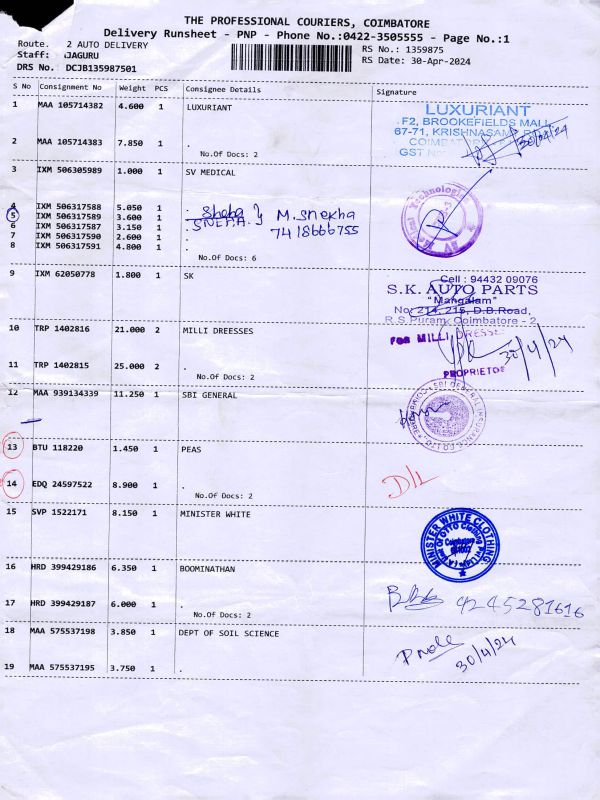 THE PROFESSIONAL COURIERS, COIMBATORE
Delivery Runsheet - PNP - Phone No.:0422-3505555 - Page No.:1
Route. 2 AUTO DELIVERY
Staff: JAGURU
DRS No. DCJB135987501
RS No.: 1359875
RS Date: 30-Apr-2024
S No Consignment No Weight PCS Consignee Details Signature
1 MAA 105714382 4.600 1 LUXURIANT
LUXURIANT
F2, BROOKEFIELDS MALL
67-71, KRISHNASAMY
2 MAA 105714383 7.850 1 .
GST
30/04/24
No.Of Docs: 2
3 IXM 506305989 1.000 1 SV MEDICAL
4 IXM 506317588 5.050 1
5 IXM 506317589 3.600 1
6 IXM 506317587 3.150 1 .
7 IXM 506317590 2.600 1 .
8 IXM 506317591 4.800 1 .
M. Snekha
7418666755
No.Of Docs: 6
9 IXM 62050778 1.800 1 SK
Cell : 94432 09076
S.K. AUTO PARTS
"Mangalam"
No: 214, 216, D.B.Road,
R.S.Puram, Coimbatore - 2
10 TRP 1402816 21.000 2 MILLI DREESSES
FOR MILLI DRESSES
30/4/24
11 TRP 1402815 25.000 2 .
PROPRIETOR
No.Of Docs: 2
12 MAA 939134339 11.250 1 SBI GENERAL
SBI GENERAL INSURANCE CO LTD
13 BTU 118220 1.450 1 PEAS
14 EDQ 24597522 8.900 1 .
D/L
No.Of Docs: 2
15 SVP 1522171 8.150 1 MINISTER WHITE
MINISTER WHITE CLOTHING
Coimbatore
641002
16 HRD 399429186 6.350 1 BOOMINATHAN
17 HRD 399429187 6.000 1 .
9245281616
No.Of Docs: 2
18 MAA 575537198 3.850 1 DEPT OF SOIL SCIENCE
30/4/24
19 MAA 575537195 3.750 1 .